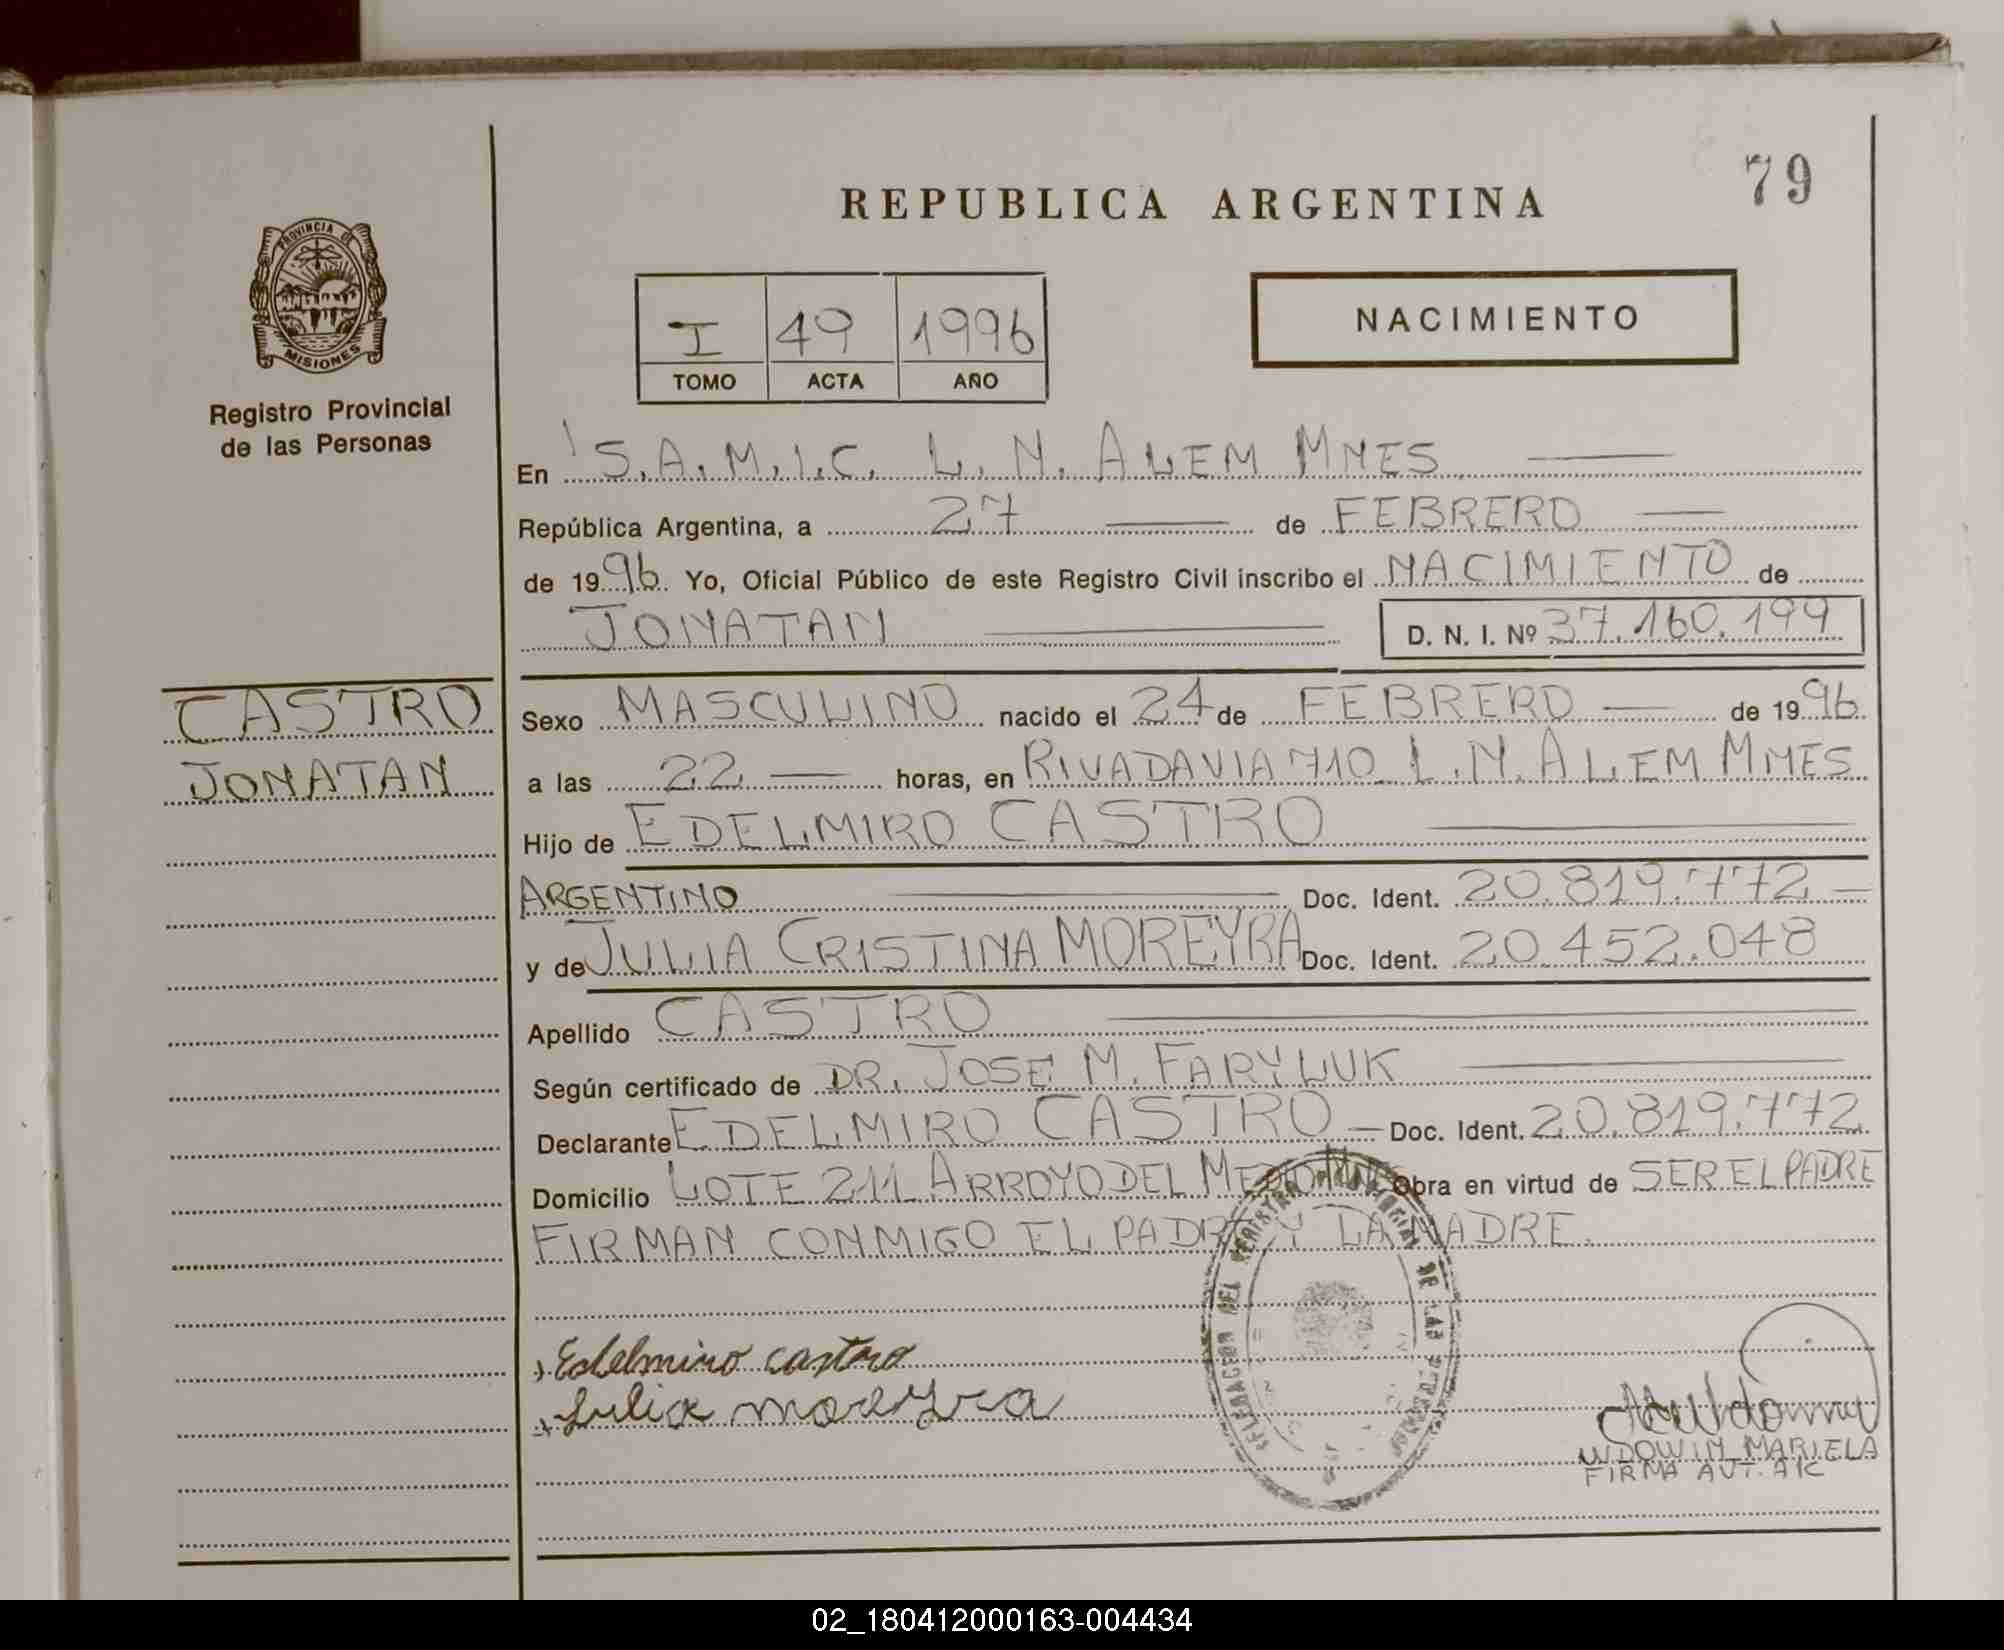 REPUBLICA ARGENTINA
79
PROVINCIA DE
MISIONES
Registro Provincial
de las Personas
I 49 1996
TOMO ACTA AÑO
NACIMIENTO
En S.A.M.I.C. L. N. ALEM MNES
República Argentina, a 27 de FEBRERO
de 1996 Yo, Oficial Público de este Registro Civil inscribo el NACIMIENTO de
JONATAN D. N. I. Nº 37.160.199
CASTRO
JONATAN
Sexo MASCULINO nacido el 24 de FEBRERO de 1996
a las 22 horas, en RIVADAVIA 710 L.N. ALEM MNES
Hijo de EDELMIRO CASTRO
ARGENTINO Doc. Ident. 20.819.772
y de JULIA CRISTINA MOREYRA Doc. Ident. 20.452.048
Apellido CASTRO
Según certificado de DR. JOSE M. FARYLUK
Declarante EDELMIRO CASTRO Doc. Ident. 20.819.772
Domicilio LOTE 211 ARROYO DEL MEDIO Obra en virtud de SER EL PADRE
FIRMAN CONMIGO EL PADRE Y LA MADRE.
Edelmiro castro
Julia moreyra
WDOWIN MARIELA
FIRMA AUT. A/C
02_180412000163-004434